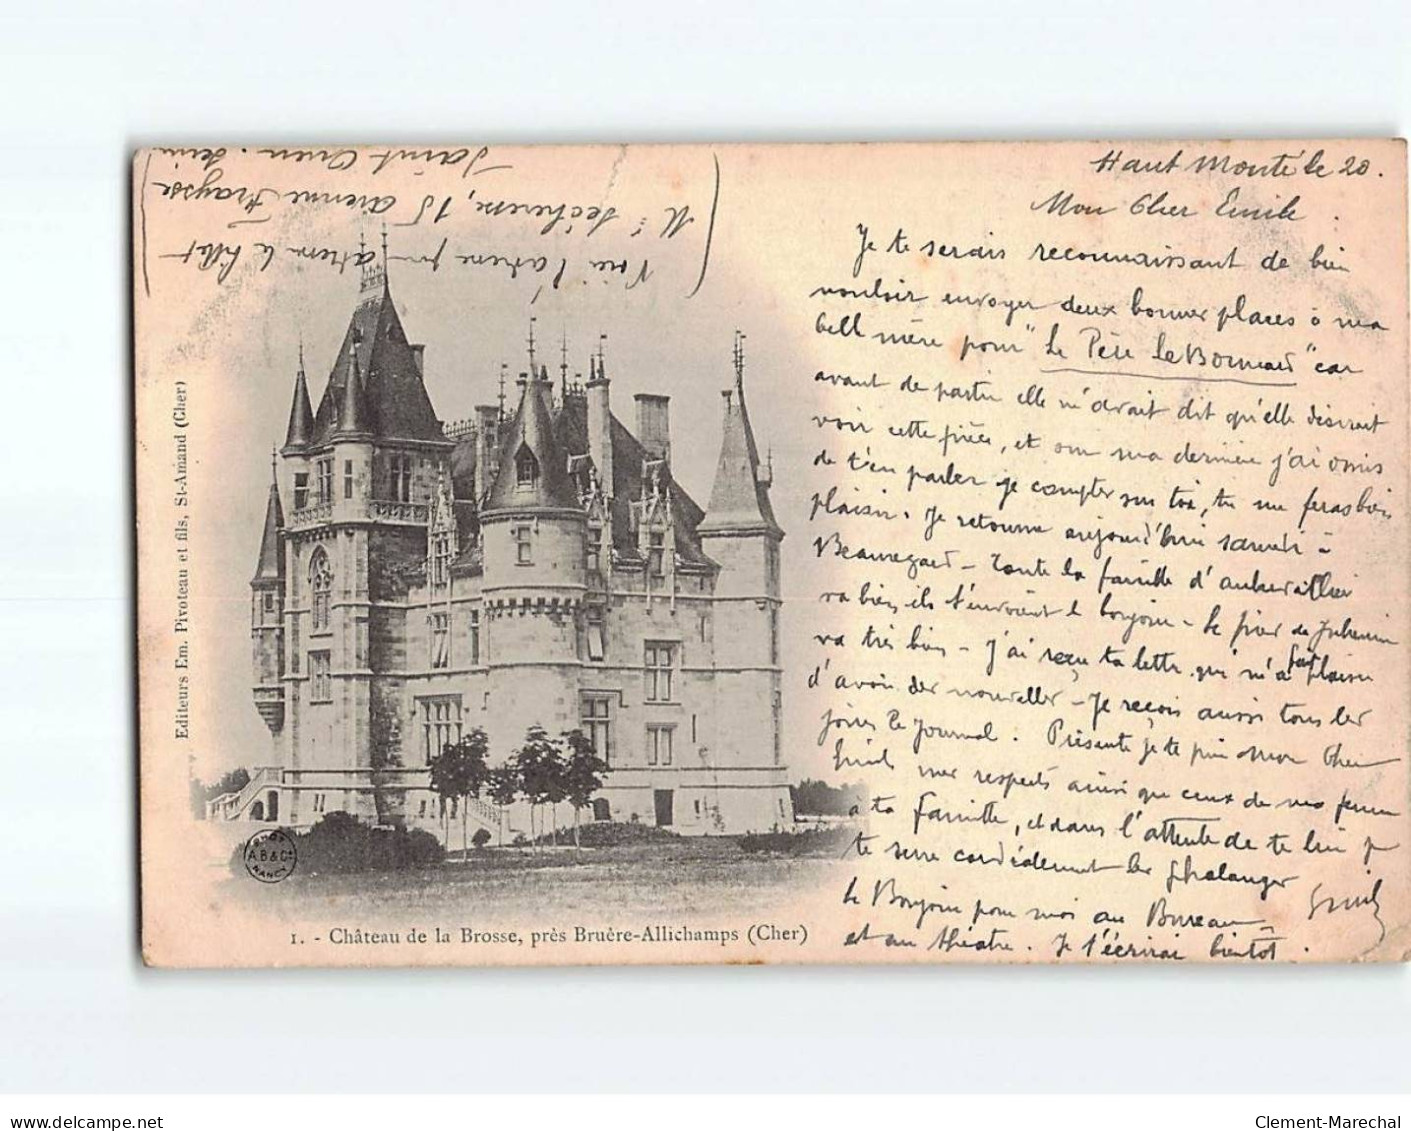 Haut Monté le 20.
Mon Cher Emile
Je te serais reconnaissant de bien
vouloir envoyer deux bonnes places à ma
bell mère pour "Le Père Le Bonnard" car
avant de partir elle m'avait dit qu'elle désirait
voir cette pièce, et on ma dernière j'ai omis
de t'en parler je compter sur toi, tu me feras bien
plaisir. Je retourne aujourd'hui samedi à
Beauregard - Toute la famille d'aubervillier
va bien, ils t'envoient le bonjour - Le
va très bien - J'ai reçu ta lettre qui m'a fait plaisir
d'avoir des nouvelles - Je reçois aussi tous les
jours le Journal. Présente je te prie Mon Cher
Emile mes respects ainsi que ceux de ma femme
à ta famille, et dans l'attente de te lire je
te serre cordialement les phalanges
Emile
le Bonjour pour moi au Bureau
et au théatre. Je t'écrirai bientôt.
Voici l'adresse pour adresser le billet
Me Sécheresse, 15 avenue Fraysse
Saint Ouen. Seine
Editeurs Em. Pivoteau et fils, St-Amand (Cher)
A.B & Cie
NANCY
1. - Château de la Brosse, près Bruère-Allichamps (Cher)
delcampe.net
Clement-Marechal